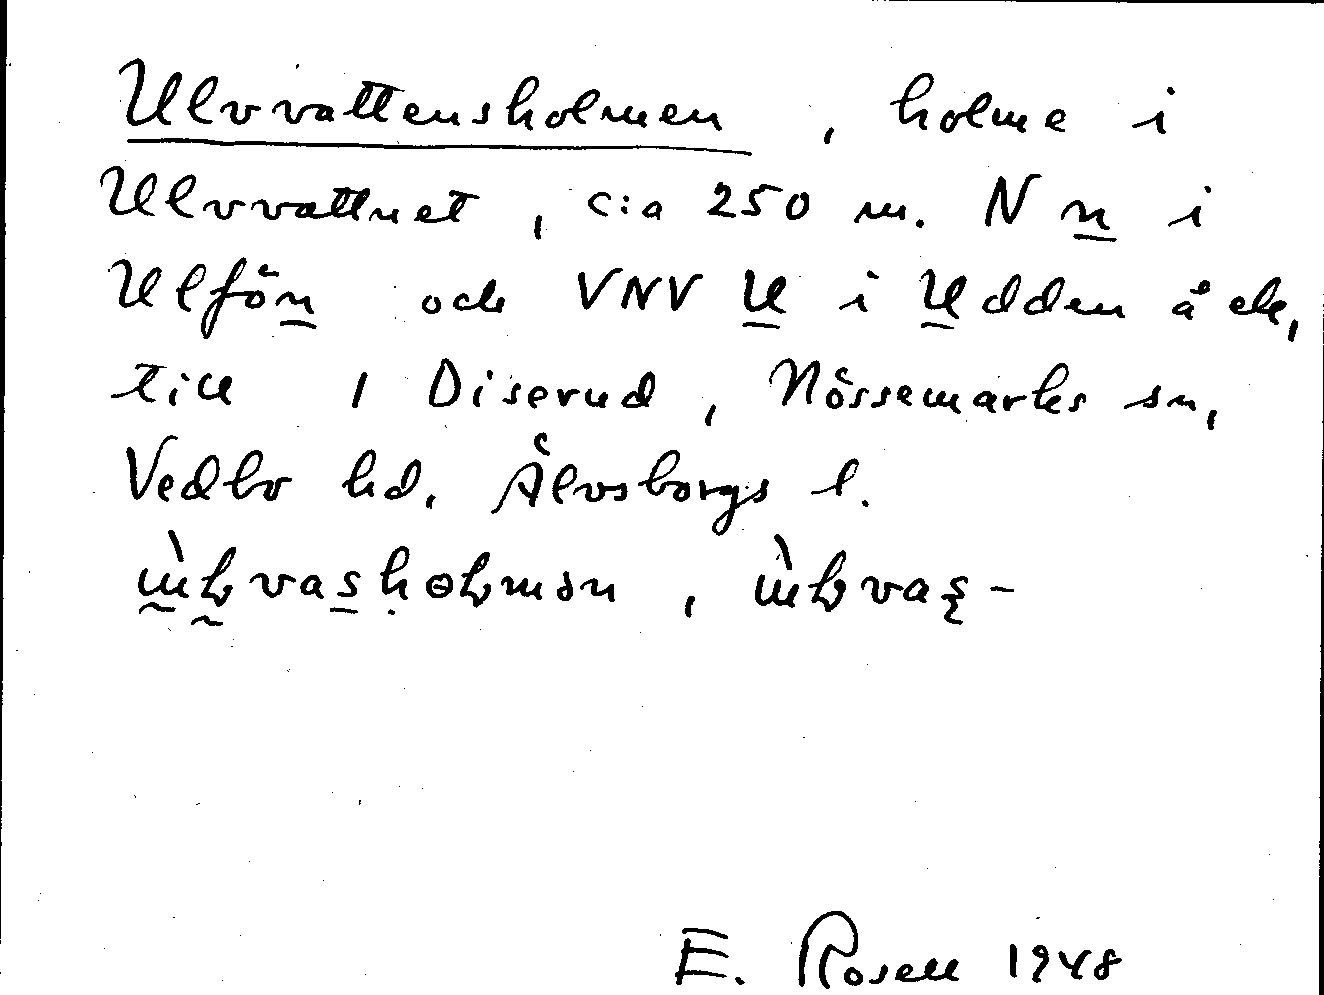 Ulvvattensholmen, holme i
Ulvvattnet, c:a 250 m. N n i
Ulfön och VNV U i Udden å ek,
till 1 Diserud, Nössemarks sn,
Vedbo hd. Älvsborgs l.
E. Rosell 1948